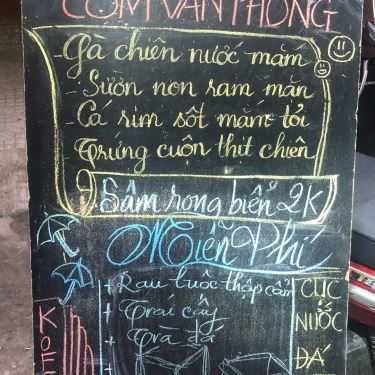 CƠM VĂN PHÒNG
Gà chiên nước mắm
Sườn non ram mặn
Cá rim sốt mắm tỏi
Trứng cuộn thịt chiên
Sâm rong biển 2K
Miễn Phí
+ Rau luộc thập cẩm
+ Trái cây
+ Trà đá
CỤC
NƯỚC
ĐÁ